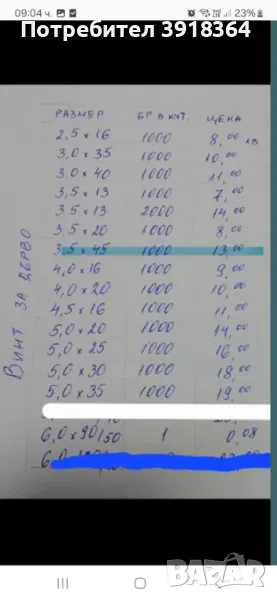 09:04 ч.
23%
Потребител 3918364
РАЗМЕР БР В КУТ. ЦЕНА
2,5 x 16 1000 8,00 лв
3,0 x 35 1000 10,00
3,0 x 40 1000 11,00
3,5 x 13 1000 7,00
3,5 x 13 2000 14,00
3,5 x 20 1000 8,00
3,5 x 45 1000 13,00
4,0 x 16 1000 9,00
4,0 x 20 1000 10,00
4,5 x 16 1000 11,00
5,0 x 20 1000 14,00
5,0 x 25 1000 16,00
5,0 x 30 1000 18,00
5,0 x 35 1000 19,00
6,0 x 90/50 1 0,08
ВИНТ ЗА ДЪРВО
bazar